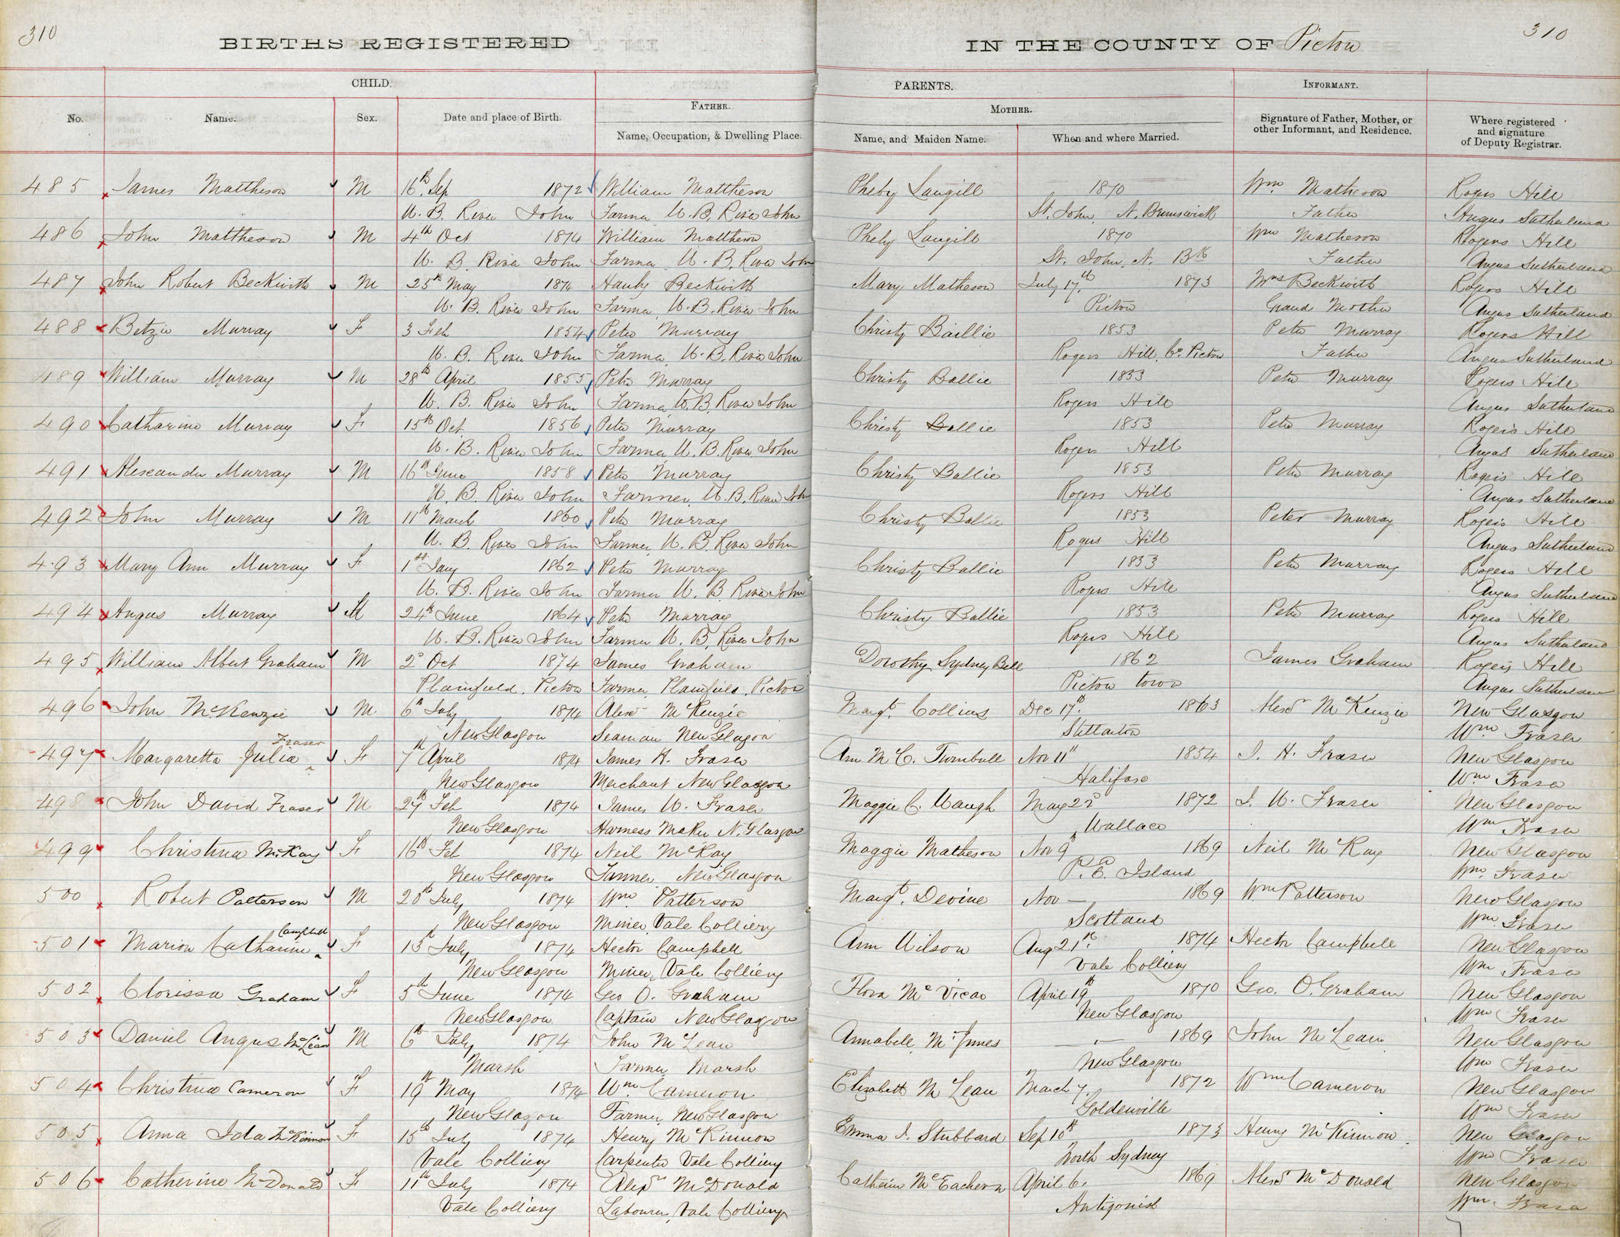 310
BIRTHS REGISTERED
IN THE COUNTY OF Pictou
310
CHILD.
PARENTS.
INFORMANT.
No.
Name.
Sex.
Date and place of Birth.
FATHER.
Name, Occupation, & Dwelling Place.
MOTHER.
Name, and Maiden Name.
When and where Married.
Signature of Father, Mother, or
other Informant, and Residence.
Where registered
and signature
of Deputy Registrar.
485 James Mattheson M 16th Sep 1872 William Mattheson Pheby Langill 1870 Wm Matheson Rogers Hill
W. B. River John Farmer W. B. River John St. John, N. Brunswick Father Angus Sutherland
486 John Mattheson M 4th Oct 1874 William Mattheson Pheby Langill 1870 Wm Matheson Rogers Hill
W. B. River John Farmer W. B. River John St. John, N. Bk Father Angus Sutherland
487 John Robert Beckwith M 25th May 1874 Beckwith Mary Matheson July 17th 1873 Mrs Beckwith Rogers Hill
W. B. River John Farmer W. B. River John Pictou Grand Mother Angus Sutherland
488 Betzie Murray F 3 Feb 1854 Peter Murray Christy Baillie 1853 Peter Murray Rogers Hill
W. B. River John Farmer W. B. River John Rogers Hill, Co. Pictou Father Angus Sutherland
489 William Murray M 28th April 1855 Peter Murray Christy Ballie 1853 Peter Murray Rogers Hill
W. B. River John Farmer W. B. River John Rogers Hill Angus Sutherland
490 Catharine Murray F 15th Oct. 1856 Peter Murray Christy Ballie 1853 Peter Murray Rogers Hill
W. B. River John Farmer W. B. River John Rogers Hill Angus Sutherland
491 Alexander Murray M 16th June 1858 Peter Murray Christy Ballie 1853 Peter Murray Rogers Hill
W. B. River John Farmer W. B. River John Rogers Hill Angus Sutherland
492 John Murray M 11th March 1860 Peter Murray Christy Ballie 1853 Peter Murray Rogers Hill
W. B. River John Farmer W. B. River John Rogers Hill Angus Sutherland
493 Mary Ann Murray F 1st Jany 1862 Peter Murray Christy Ballie 1853 Peter Murray Rogers Hill
W. B. River John Farmer W. B. River John Rogers Hill Angus Sutherland
494 Angus Murray M 24th June 1864 Peter Murray Christy Ballie 1853 Peter Murray Rogers Hill
W. B. River John Farmer W. B. River John Rogers Hill Angus Sutherland
495 William Albert Graham M 2d Oct 1874 James Graham Dorothy Sydney Bell 1862 James Graham Rogers Hill
Plainfield, Pictou Farmer, Plainfield, Pictou Pictou town Angus Sutherland
496 John McKenzie M 6th July 1874 Alexr McKenzie Margt. Collins Dec 17th 1863 Alexr McKenzie New Glasgow
New Glasgow Seaman New Glasgow Stellarton Wm Fraser
497 Margaretta Julia Fraser F 7th April 1874 James H. Fraser Ann M. C. Turnbull Nov 11th 1854 J. H. Fraser New Glasgow
New Glasgow Merchant New Glasgow Halifax Wm Fraser
498 John David Fraser M 27th Feb 1874 James W. Fraser Maggie C. Waugh May 22d 1872 J. W. Fraser New Glasgow
New Glasgow Harness Maker N. Glasgow Wallace Wm Fraser
499 Christina McKay F 16th Feb 1874 Neil McKay Maggie Matheson Nov 9 1869 Neil McKay New Glasgow
New Glasgow Tanner New Glasgow P. E. Island Wm. Fraser
500 Robert Patterson M 20th July 1874 Wm Patterson Margt. Devine Nov — 1869 Wm Patterson New Glasgow
New Glasgow Miner, Vale Colliery Scotland Wm Fraser
501 Marion Catharine Campbell F 13th July 1874 Hector Campbell Ann Wilson Aug 21st 1874 Hector Campbell New Glasgow
New Glasgow Miner, Vale Colliery Vale Colliery Wm Fraser
502 Clorissa Graham F 5th June 1874 Geo O. Graham Flora McVicar April 19th 1870 Geo. O. Graham New Glasgow
New Glasgow Captain New Glasgow New Glasgow Wm Fraser
503 Daniel Angus McLean M 6th July 1874 John McLean Annabell McInnes — 1869 John McLean New Glasgow
Marsh Farmer Marsh New Glasgow Wm Fraser
504 Christina Cameron F 19th May 1874 Wm Cameron Elizabeth McLean March 7, 1872 Wm Cameron New Glasgow
New Glasgow Farmer, New Glasgow Goldenville Wm Fraser
505 Anna Ida McKinnon F 15th July 1874 Henry McKinnon Emma J. Stubbard Sep 10th 1873 Henry McKinnon New Glasgow
Vale Colliery Carpenter Vale Colliery North Sydney Wm Fraser
506 Catherine McDonald F 11th July 1874 Alexr McDonald Catharin McEachern April 6. 1869 Alexr McDonald New Glasgow
Vale Colliery Labourer, Vale Colliery Antigonish Wm. Fraser